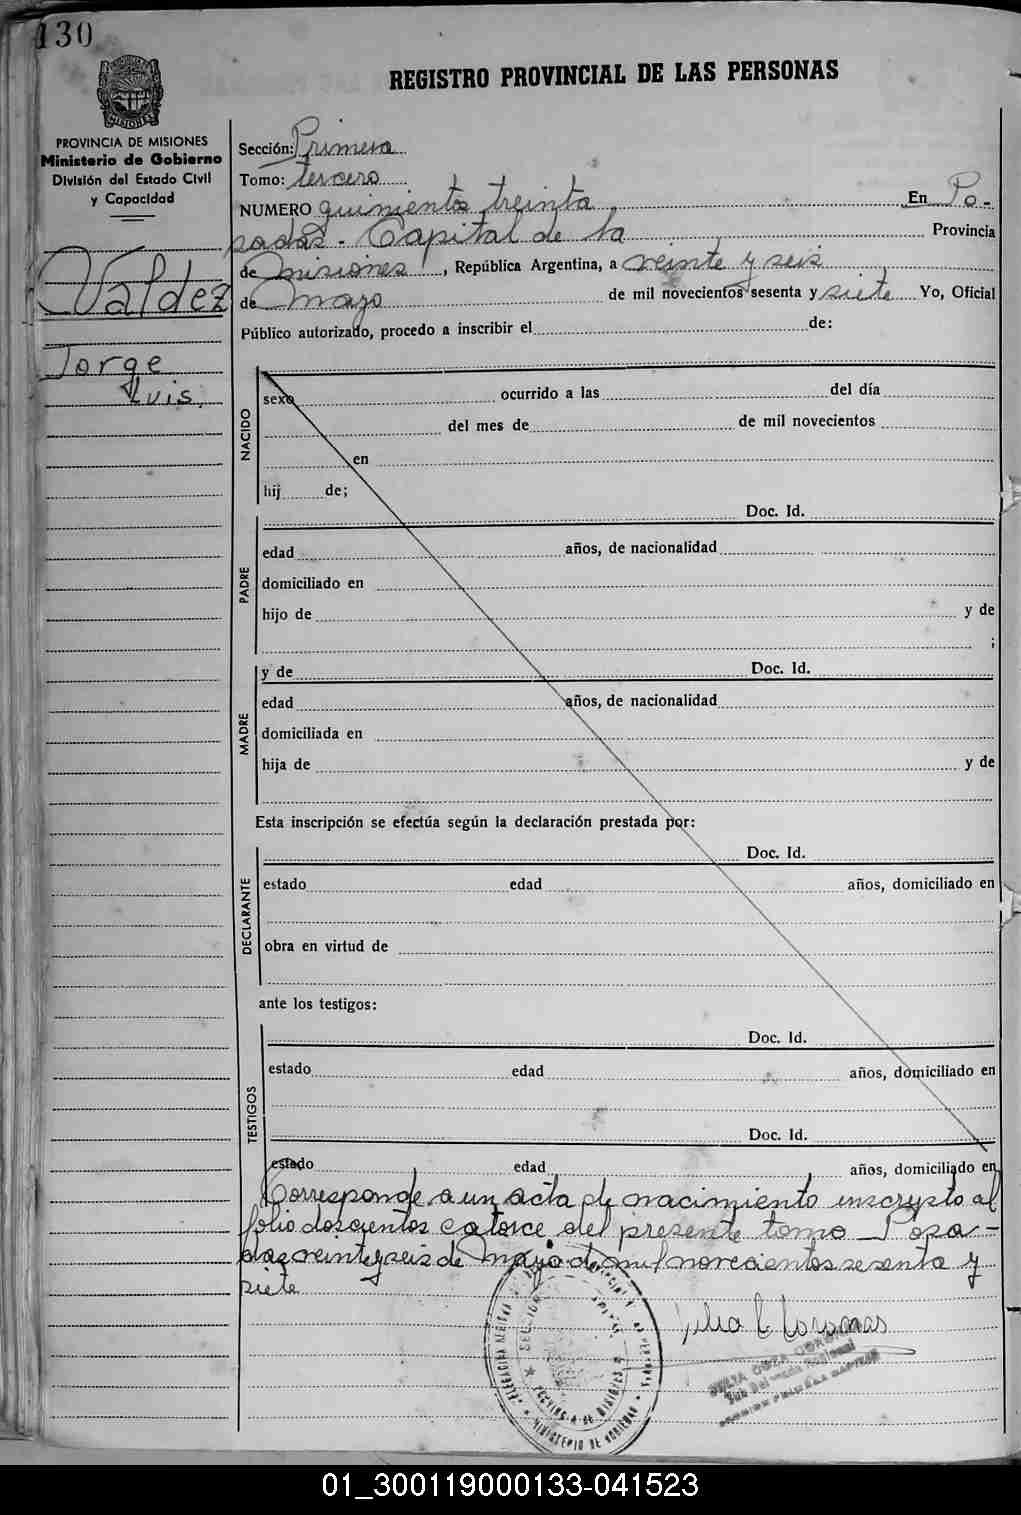 130
REGISTRO PROVINCIAL DE LAS PERSONAS
MISIONES
PROVINCIA DE MISIONES
Ministerio de Gobierno
División del Estado Civil
y Capacidad
Valdez
Jorge
Luis.
Sección: Primera
Tomo: tercero
NUMERO quinientos treinta En Po-
sadas - Capital de la Provincia
de Misiones, República Argentina, a veinte y seis
de Mayo de mil novecientos sesenta y siete Yo, Oficial
Público autorizado, procedo a inscribir el de:
NACIDO
sexo ocurrido a las del día
del mes de de mil novecientos
en
hij de;
Doc. Id.
PADRE
edad años, de nacionalidad
domiciliado en
hijo de y de
;
y de Doc. Id.
MADRE
edad años, de nacionalidad
domiciliada en
hija de y de
Esta inscripción se efectúa según la declaración prestada por:
Doc. Id.
DECLARANTE
estado edad años, domiciliado en
obra en virtud de
ante los testigos:
Doc. Id.
TESTIGOS
estado edad años, domiciliado en
Doc. Id.
estado edad años, domiciliado en
Corresponde a un acta de nacimiento inscrypto al
folio doscientos catorce del presente tomo Posa-
das veinte y seis de Mayo de mil novecientos sesenta y
siete
PROVINCIA DE MISIONES
MINISTERIO DE GOBIERNO
01_300119000133-041523